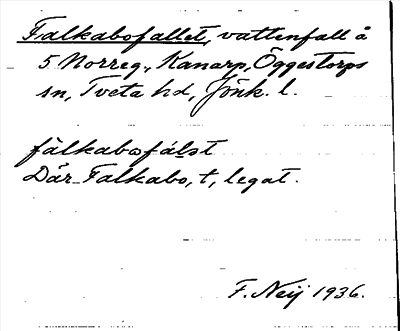 Falkabofallet, vattenfall å
5 Norreg., Kanarp, Öggestorps
sn, Tveta hd, Jönk. l.
fàlkabωfálst
Där Falkabo, t, legat.
F. Neij 1936.